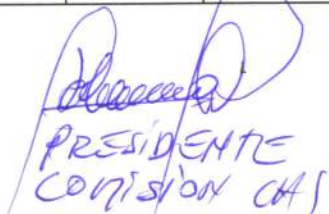 PRESIDENTE
COMISIÓN CAS